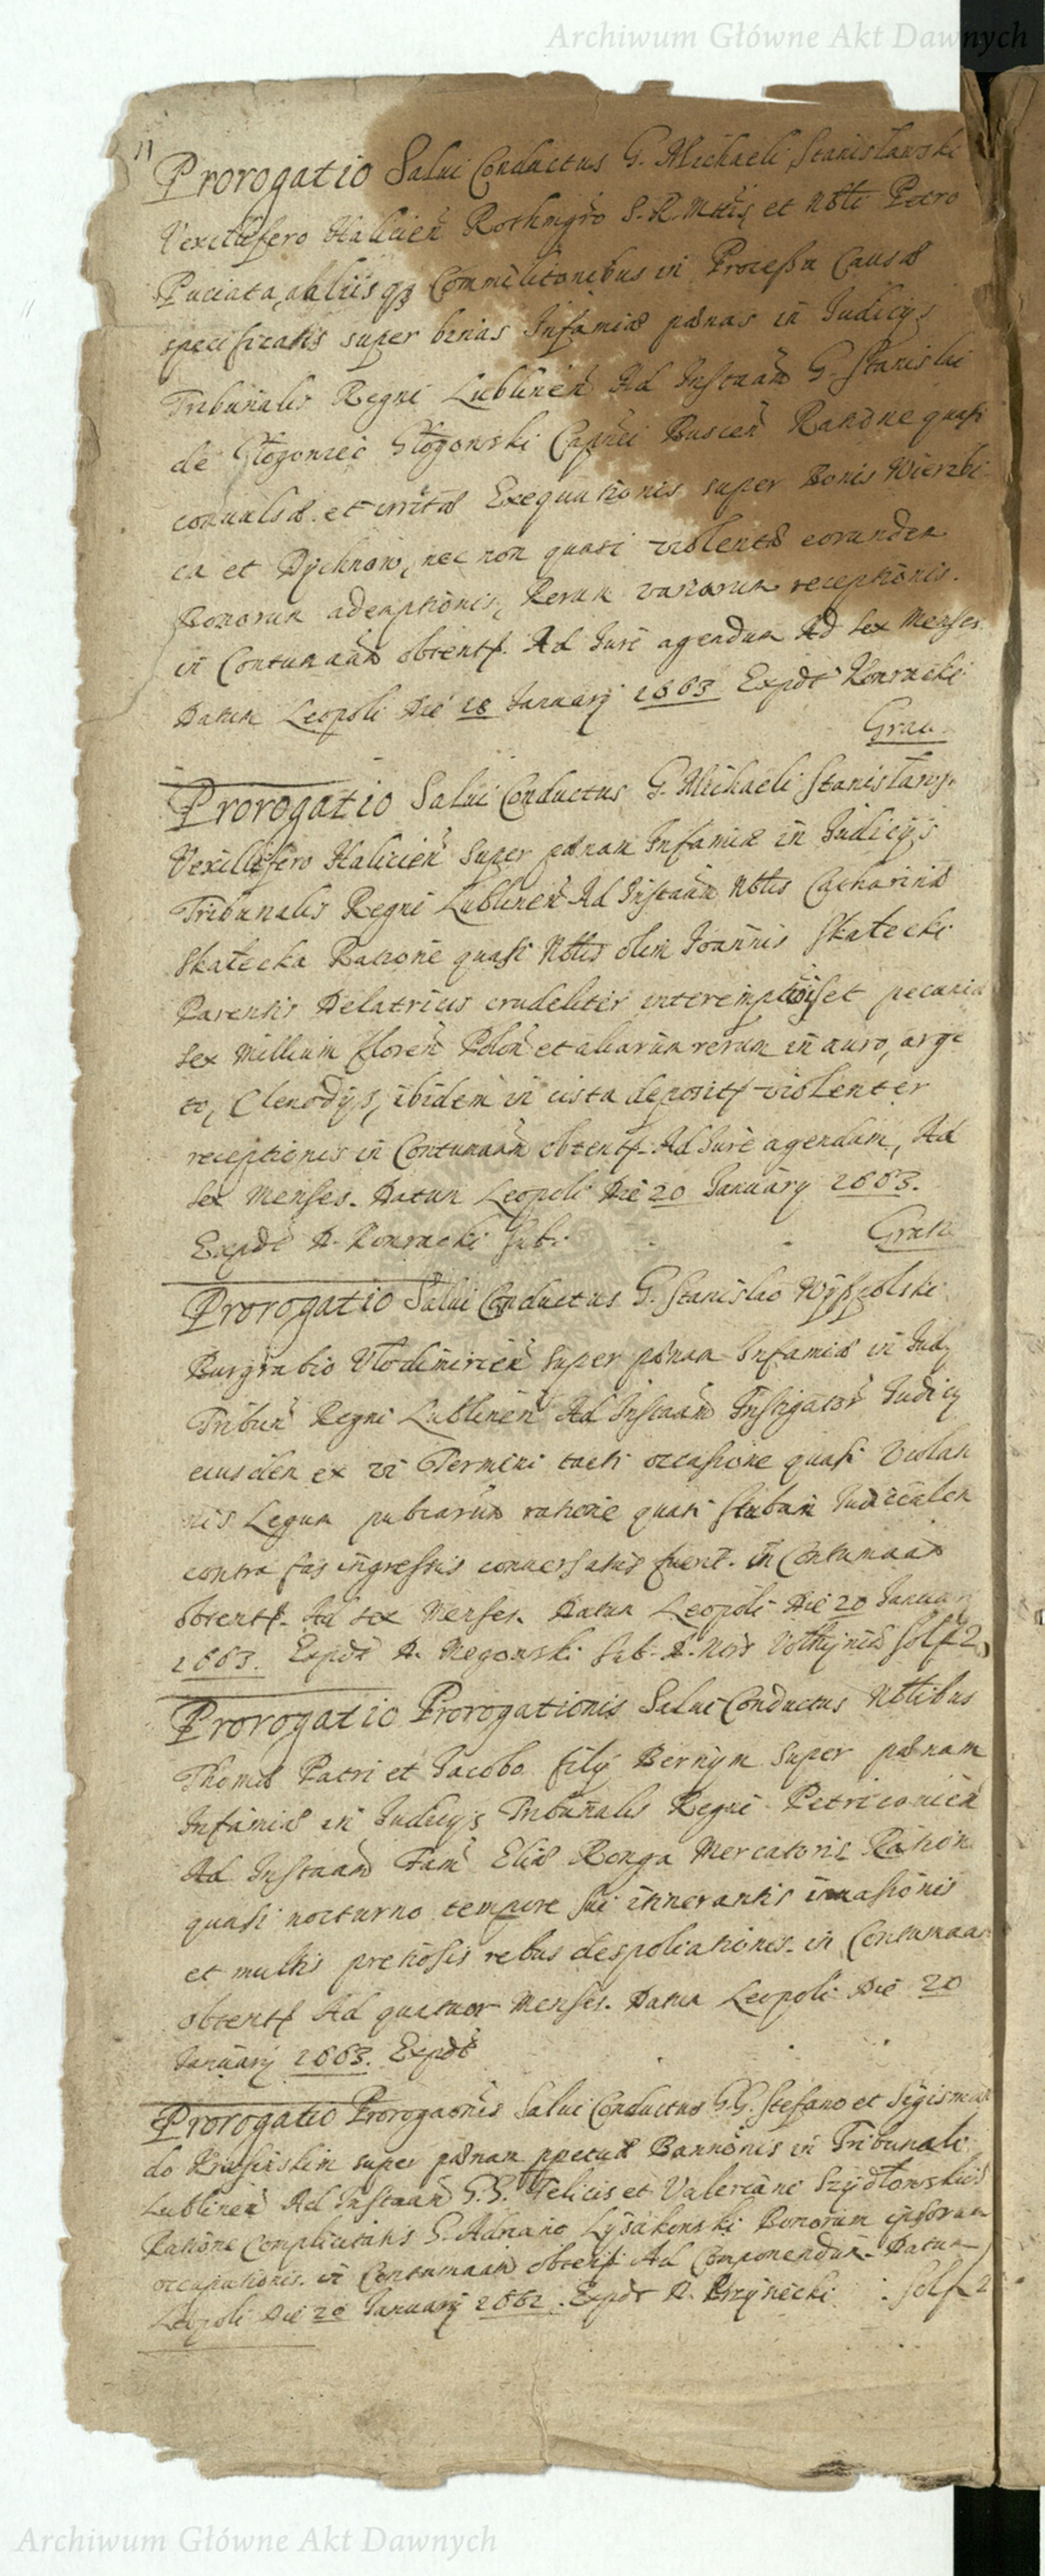 Archiwum Główne Akt Dawnych
11
Prorogatio Salui Conductus G. Michaeli Stanisławski
Vexillifero Halicien Rothmgro S. R. Mttis et Nbli Petro
Puciata, aliisqz Commilitonibus in Processu Causæ
specificatis super binas Infamiæ pœnas in Iudicijs
Tribunalis Regni Lublinen Ad Instaām G. Stanislai
de Głogowiec Głogowski Capnei Buscen Ratione quasi
conuulsæ et irritæ Exequutionis super Bonis Wierzbi
ca et Dychnow, nec non quasi violentæ eorundem
Bonorum ademptionis, Rerum variarum receptionis.
in Contumaām obtent. Ad Iure agendum Ad sex Menses
Datum Leopoli Die 18 January 1663 Expdt
Gratis
Prorogatio Salui Conductus G. Michaeli Stanisławs.
Vexillifero Halicien super pœnam Infamiæ in Iudicijs
Tribunalis Regni Lublinen Ad Instaām Nblis Catharinæ
Skałecka Ratione quasi Nblis olim Ioannis Skałecki
Parentis Delatricis crudeliter interemptionis et pecuniæ
sex Millium floren Polon et aliarum rerum in auro, arge
to, Clenodijs, ibidem in cista deposit violenter
receptionis in Contumaām obtent. Ad Iure agendum, Ad
sex Menses. Datum Leopoli Die 20 January 1663.
Expdt Sub:
Gratis
Prorogatio Salui Conductus G. Stanislao
Burgrabio Vlodimirien super pœnam Infamiæ in Iudy
Tribun Regni Lublinen Ad Instaām Instigator Iudicij
eiusdem ex vi Termini tacti occasione quasi Violatio
nis Legum publicarum ratione quasi stubam Iudicialem
contra fas ingressus conuersatus fuerit. in Contumaām
obtent. Ad sex Menses. Datum Leopoli Die 20 January
1663. Expdt Sub. Volhyniæ Solf 2
Prorogatio Prorogationis Salui Conductus Nblibus
Thomæ Patri et Iacobo filij Bernym super pœnam
Infamiæ in Iudicijs Tribunalis Regni Petricouien
Ad Instaām Fam Eliæ Ronga Mercatoris Ratione
quasi nocturno tempore sui itinerantis inuasionis
et multis pretiosis rebus despoliationis. in Contumaām
obtent Ad quatuor Menses. Datum Leopoli Die 20
January 1663. Expdt
Prorogatio Prorogaonis Salui Conductus G.G. Stefano et Sigismun
do super pœnam ppetuæ Bannonis in Tribunali
Lublinen Ad Instaām G.G. Felicis et Valeriani Szydłowskich
Ratione Complicitatis G. Adriano Łysakowski Bonorum ipsorum
occupationis. in Contumaām obtent Ad Componendum. Datum
Leopoli Die 20 January 1662. Expdt Solf 2
Archiwum Główne Akt Dawnych